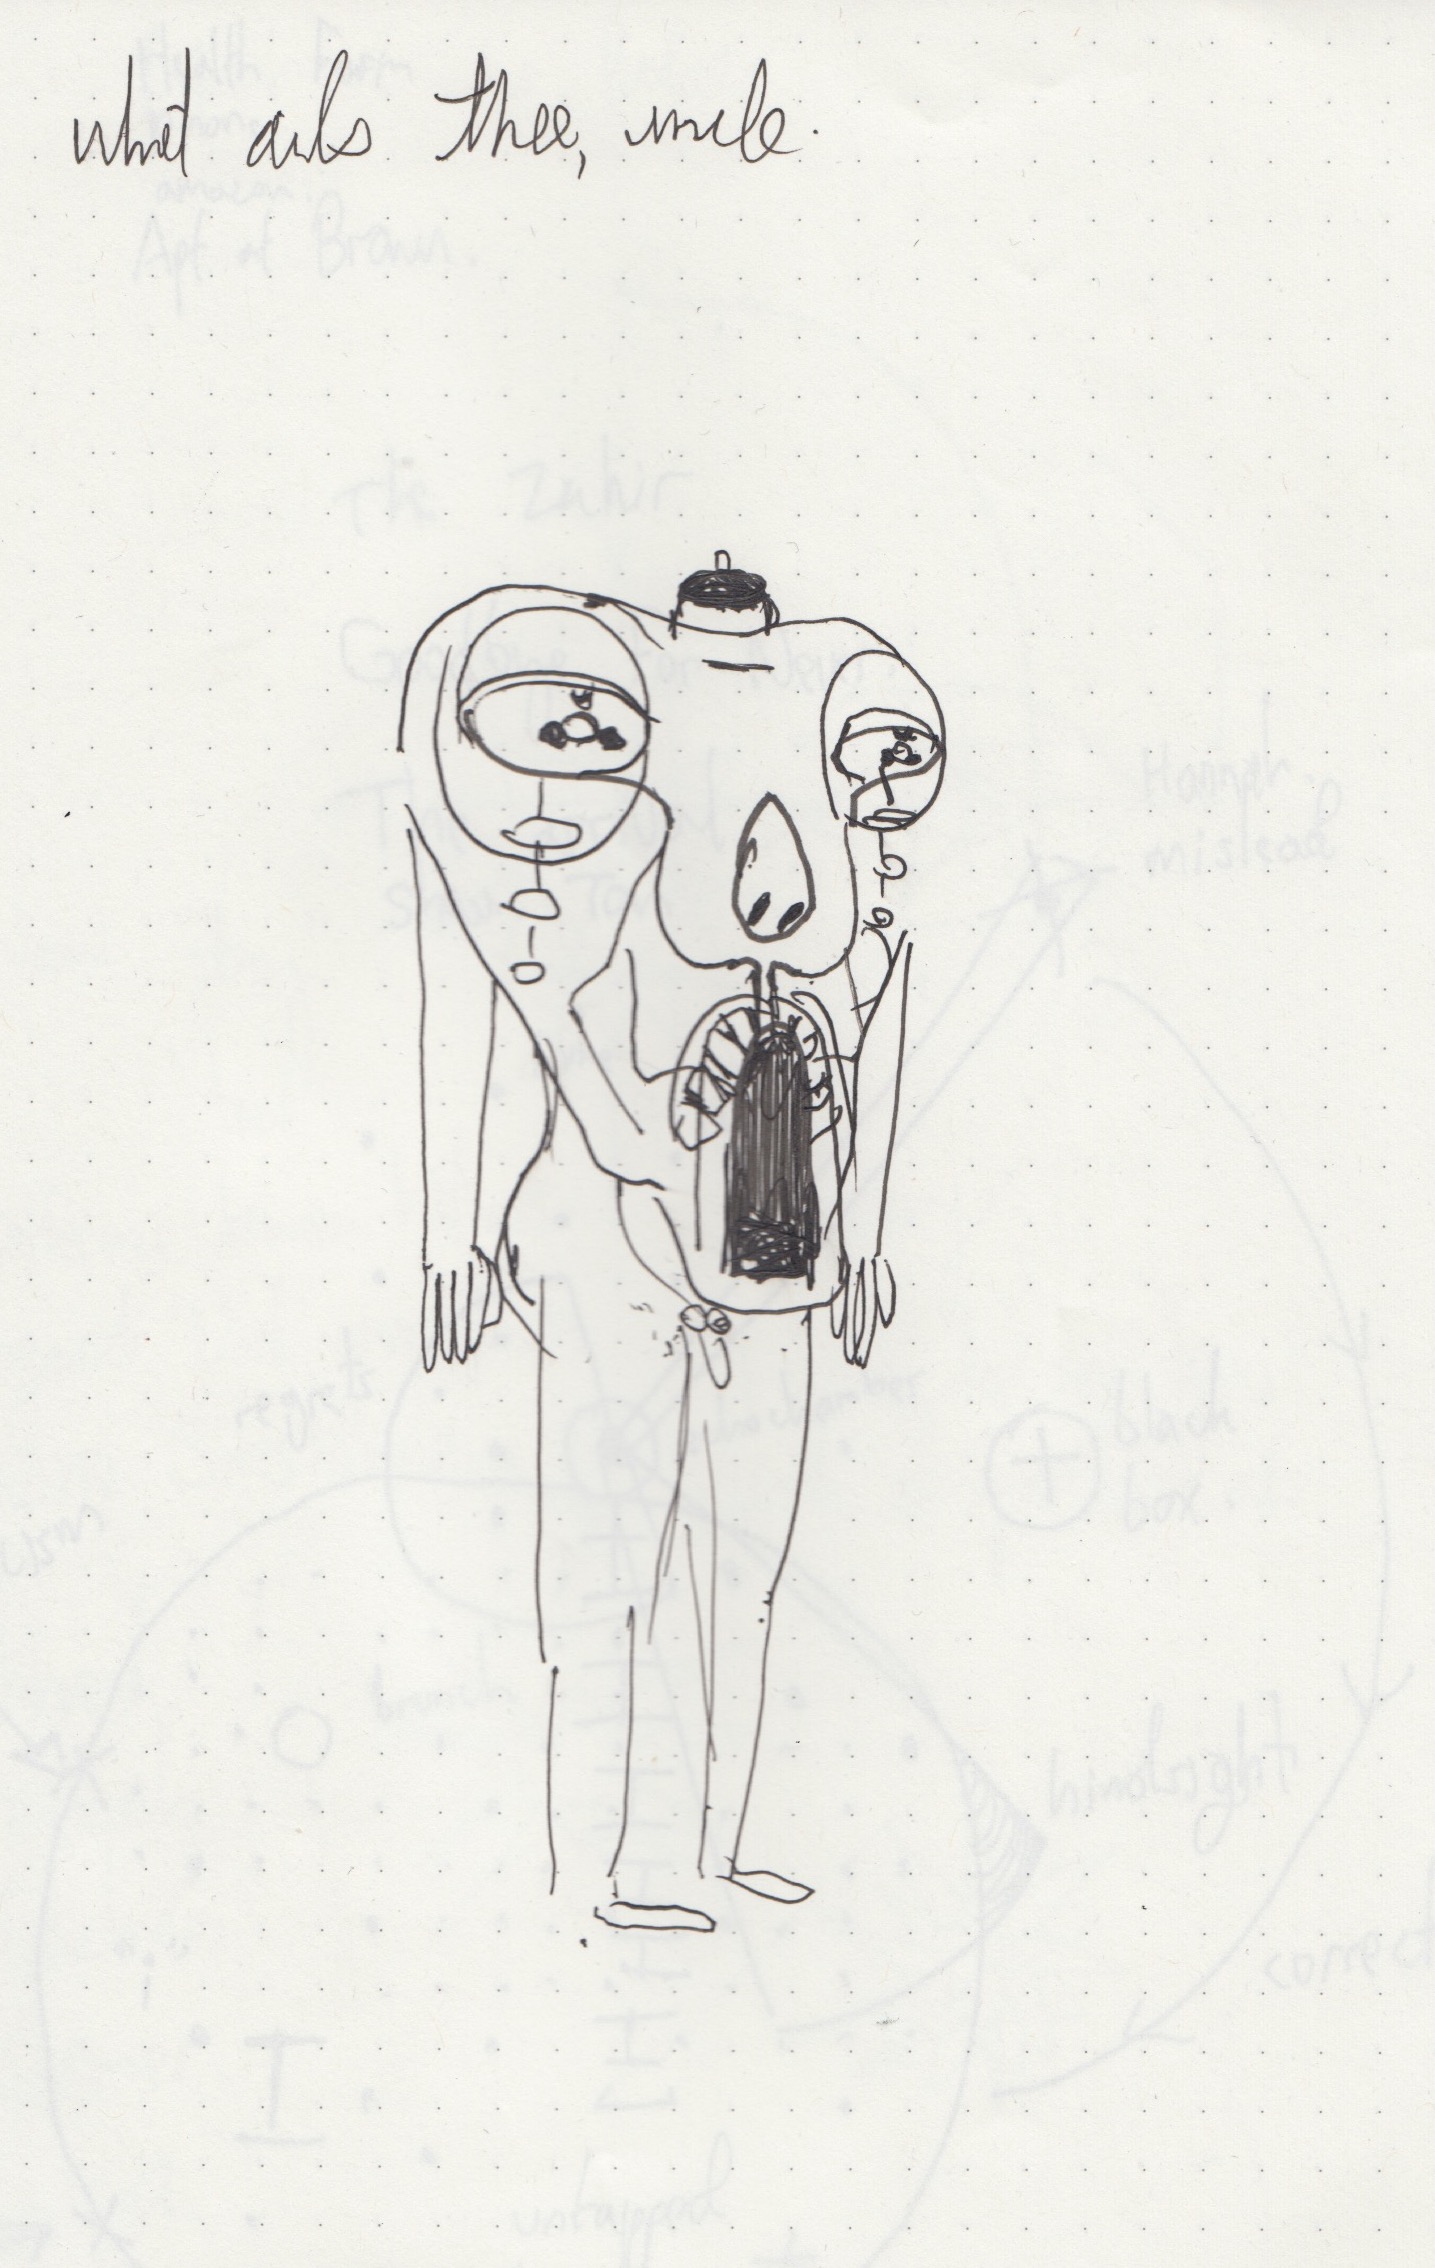 what ails thee, uncle.
Health Farm
amazon.
Apt at Brown.
The Zahir
Hannah
mislead
regrets
black
box.
branch
hindsight
correct
I
untapped